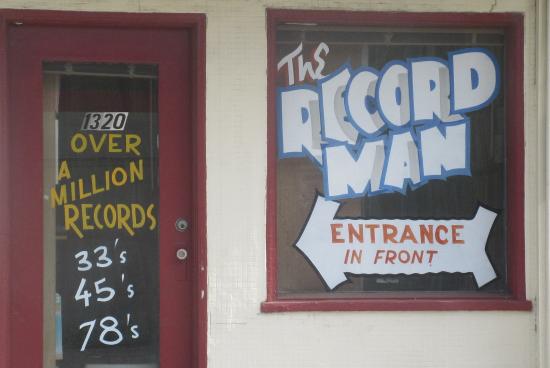 1320
OVER
A
MILLION
RECORDS
33's
45's
78's
THE
RECORD
MAN
ENTRANCE
IN FRONT